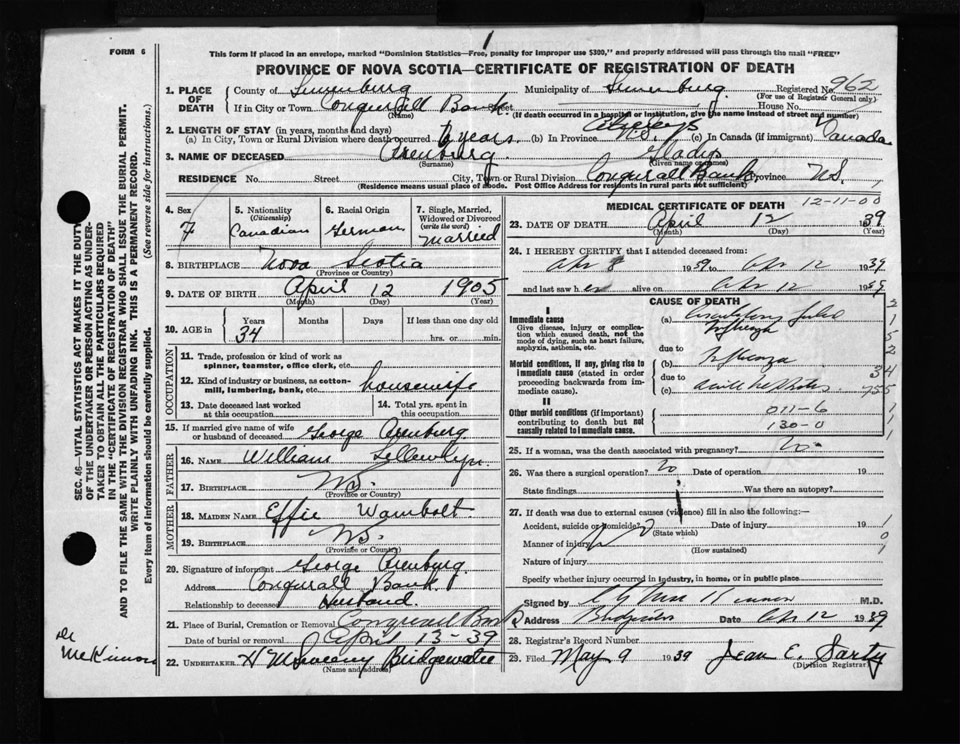 FORM 6
1
This form if placed in an envelope, marked "Dominion Statistics—Free, penalty for improper use $300," and properly addressed will pass through the mail "FREE"
PROVINCE OF NOVA SCOTIA—CERTIFICATE OF REGISTRATION OF DEATH
1. PLACE OF DEATH County of Lunenburg Municipality of Lunenburg Registered No. 962
(For use of Registrar General only)
If in City or Town Conquerall Bank Street House No.
(Name) (If death occurred in a hospital or institution, give the name instead of street and number)
2. LENGTH OF STAY (in years, months and days)
(a) In City, Town or Rural Division where death occurred years (b) In Province always (c) In Canada (if immigrant) Canada
3. NAME OF DECEASED Arenburg Gladys
(Surname) (Given name or names)
RESIDENCE No. Street City, Town or Rural Division Conquerall Bank Province N.S.
(Residence means usual place of abode. Post Office Address for residents in rural parts not sufficient)
4. Sex F
5. Nationality (Citizenship) Canadian
6. Racial Origin German
7. Single, Married, Widowed or Divorced (write the word) Married
8. BIRTHPLACE Nova Scotia
(Province or Country)
9. DATE OF BIRTH April 12 1905
(Month) (Day) (Year)
10. AGE in Years 34 Months Days If less than one day old hrs. or min.
OCCUPATION
11. Trade, profession or kind of work as spinner, teamster, office clerk, etc.
12. Kind of industry or business, as cotton-mill, lumbering, bank, etc. housewife
13. Date deceased last worked at this occupation
14. Total yrs. spent in this occupation
15. If married give name of wife or husband of deceased George Arenburg
FATHER
16. NAME William
17. BIRTHPLACE N.S.
(Province or Country)
MOTHER
18. MAIDEN NAME Effie Wambolt
19. BIRTHPLACE N.S.
(Province or Country)
20. Signature of informant George Arenburg
Address Conquerall Bank
Relationship to deceased Husband
21. Place of Burial, Cremation or Removal Conquerall Bank
Date of burial or removal April 13-39
22. UNDERTAKER Bridgewater
(Name and Address)
MEDICAL CERTIFICATE OF DEATH 12-11-00
23. DATE OF DEATH April 12 1939
(Month) (Day) (Year)
24. I HEREBY CERTIFY that I attended deceased from:
Apr 8 1939 to Apr 12 1939
and last saw her alive on Apr 12 1939
CAUSE OF DEATH
I
Immediate cause
Give disease, injury or complication which caused death, not the mode of dying, such as heart failure, asphyxia, asthenia, etc.
(a)
due to
Morbid conditions, if any, giving rise to immediate cause (stated in order proceeding backwards from immediate cause).
(b) Influenza
due to
(c)
II
Other morbid conditions (if important) contributing to death but not causally related to immediate cause.
011-6
130-0
25. If a woman, was the death associated with pregnancy? No
26. Was there a surgical operation? No Date of operation 19
State findings Was there an autopsy?
27. If death was due to external causes (violence) fill in also the following:—
Accident, suicide or homicide? Date of injury 19
(State which)
Manner of injury
(How sustained)
Nature of injury
Specify whether injury occurred in industry, in home, or in public place
Signed by M.D.
Address Bridgewater Date Apr 12 1939
28. Registrar's Record Number
29. Filed May 9 1939 Jean E. Sarty
(Division Registrar)
SEC. 46—VITAL STATISTICS ACT MAKES IT THE DUTY OF THE UNDERTAKER OR PERSON ACTING AS UNDERTAKER TO OBTAIN ALL THE PARTICULARS REQUIRED IN THE "CERTIFICATE OF REGISTRATION OF DEATH" AND TO FILE THE SAME WITH THE DIVISION REGISTRAR WHO SHALL ISSUE THE BURIAL PERMIT.
WRITE PLAINLY WITH UNFADING INK. THIS IS A PERMANENT RECORD.
Every item of information should be carefully supplied. (See reverse side for instructions.)
Dr McKinnon